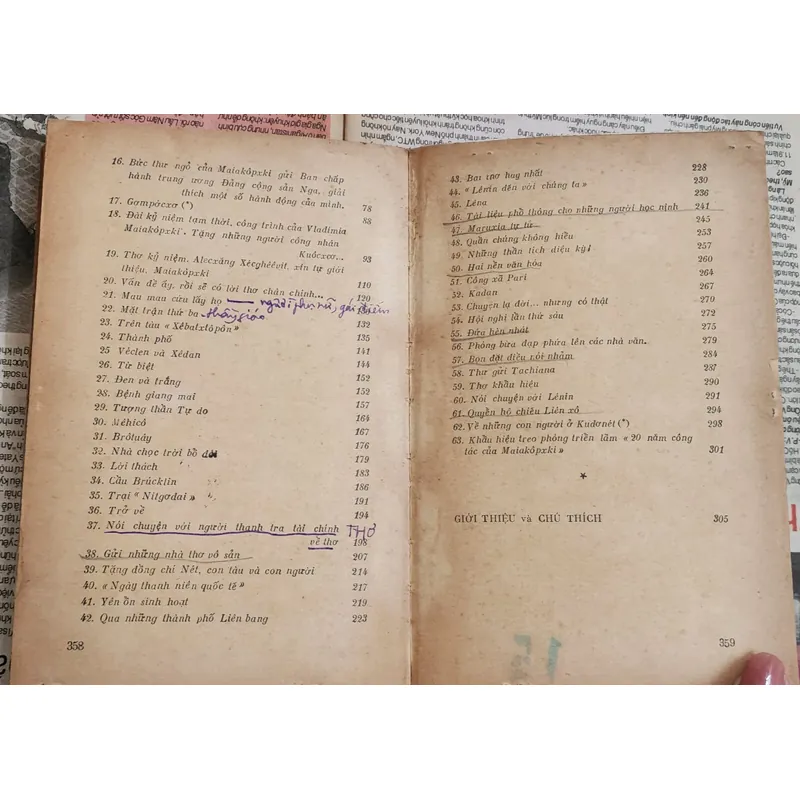 16. Bức thư ngỏ của Maiakôpxki gửi Ban chấp
hành trung ương Đảng cộng sản Nga, giải
thích một số hành động của mình. 78
17. Gompócxơ (*) 88
18. Đài kỷ niệm tạm thời, công trình của Vladimia
Maiakôpxki. Tặng những người công nhân
Kuốcxcơ... 93
19. Thơ kỷ niệm. Alecxăng Xécghêêvit, xin tự giới
thiệu. Maiakôpxki 110
20. Vấn đề ấy, rồi sẽ có lời thơ chân chính... 120
21. Mau mau cứu lấy họ — người phụ nữ, gái điếm
22. Mặt trận thứ ba thầy giáo
23. Trên tàu « Xêbaxtôpôn » 132
24. Thành phố 135
25. Véclen và Xêdan 141
26. Từ biệt 144
27. Đen và trắng 152
28. Bệnh giang mai 152
29. Tượng thần Tự do 157
30. Mêhicô 164
31. Brôtuây 167
32. Nhà chọc trời bổ dọc 176
33. Lời thách 179
34. Cầu Brúcklin 183
35. Trại « Nitgơdai » 186
36. Trở về 191
37. Nói chuyện với người thanh tra tài chính 194
về thơ 198 THƠ
38. Gửi những nhà thơ vô sản 207
39. Tặng đồng chí Nét, con tàu và con người 214
40. « Ngày thanh niên quốc tế » 217
41. Yên ổn sinh hoạt 219
42. Qua những thành phố Liên bang 223
358
43. Bài thơ hay nhất 228
44. « Lênin đến với chúng ta » 230
45. Léna 236
46. Tài liệu phổ thông cho những người học nịnh 241
47. Maruxia tự tử 245
48. Quần chúng không hiểu 253
49. Những thần tích diệu kỳ! 257
50. Hai nền văn hóa 260
51. Công xã Pari 264
52. Kadan 267
53. Chuyện lạ đời... nhưng có thật 270
54. Hội nghị lần thứ sáu 272
55. Đứa hèn nhát 275
56. Phóng bừa đạp phứa lên các nhà văn. 279
57. Bọn đặt điều nói nhảm 284
58. Thư gửi Tachiana 287
59. Thơ khẩu hiệu 290
60. Nói chuyện với Lênin 291
61. Quyển hộ chiếu Liên xô 294
62. Về những con người ở Kudơnét (*) 298
63. Khẩu hiệu treo phòng triển lãm « 20 năm công
tác của Maiakôpxki » 301
*
GIỚI THIỆU và CHÚ THÍCH 305
359